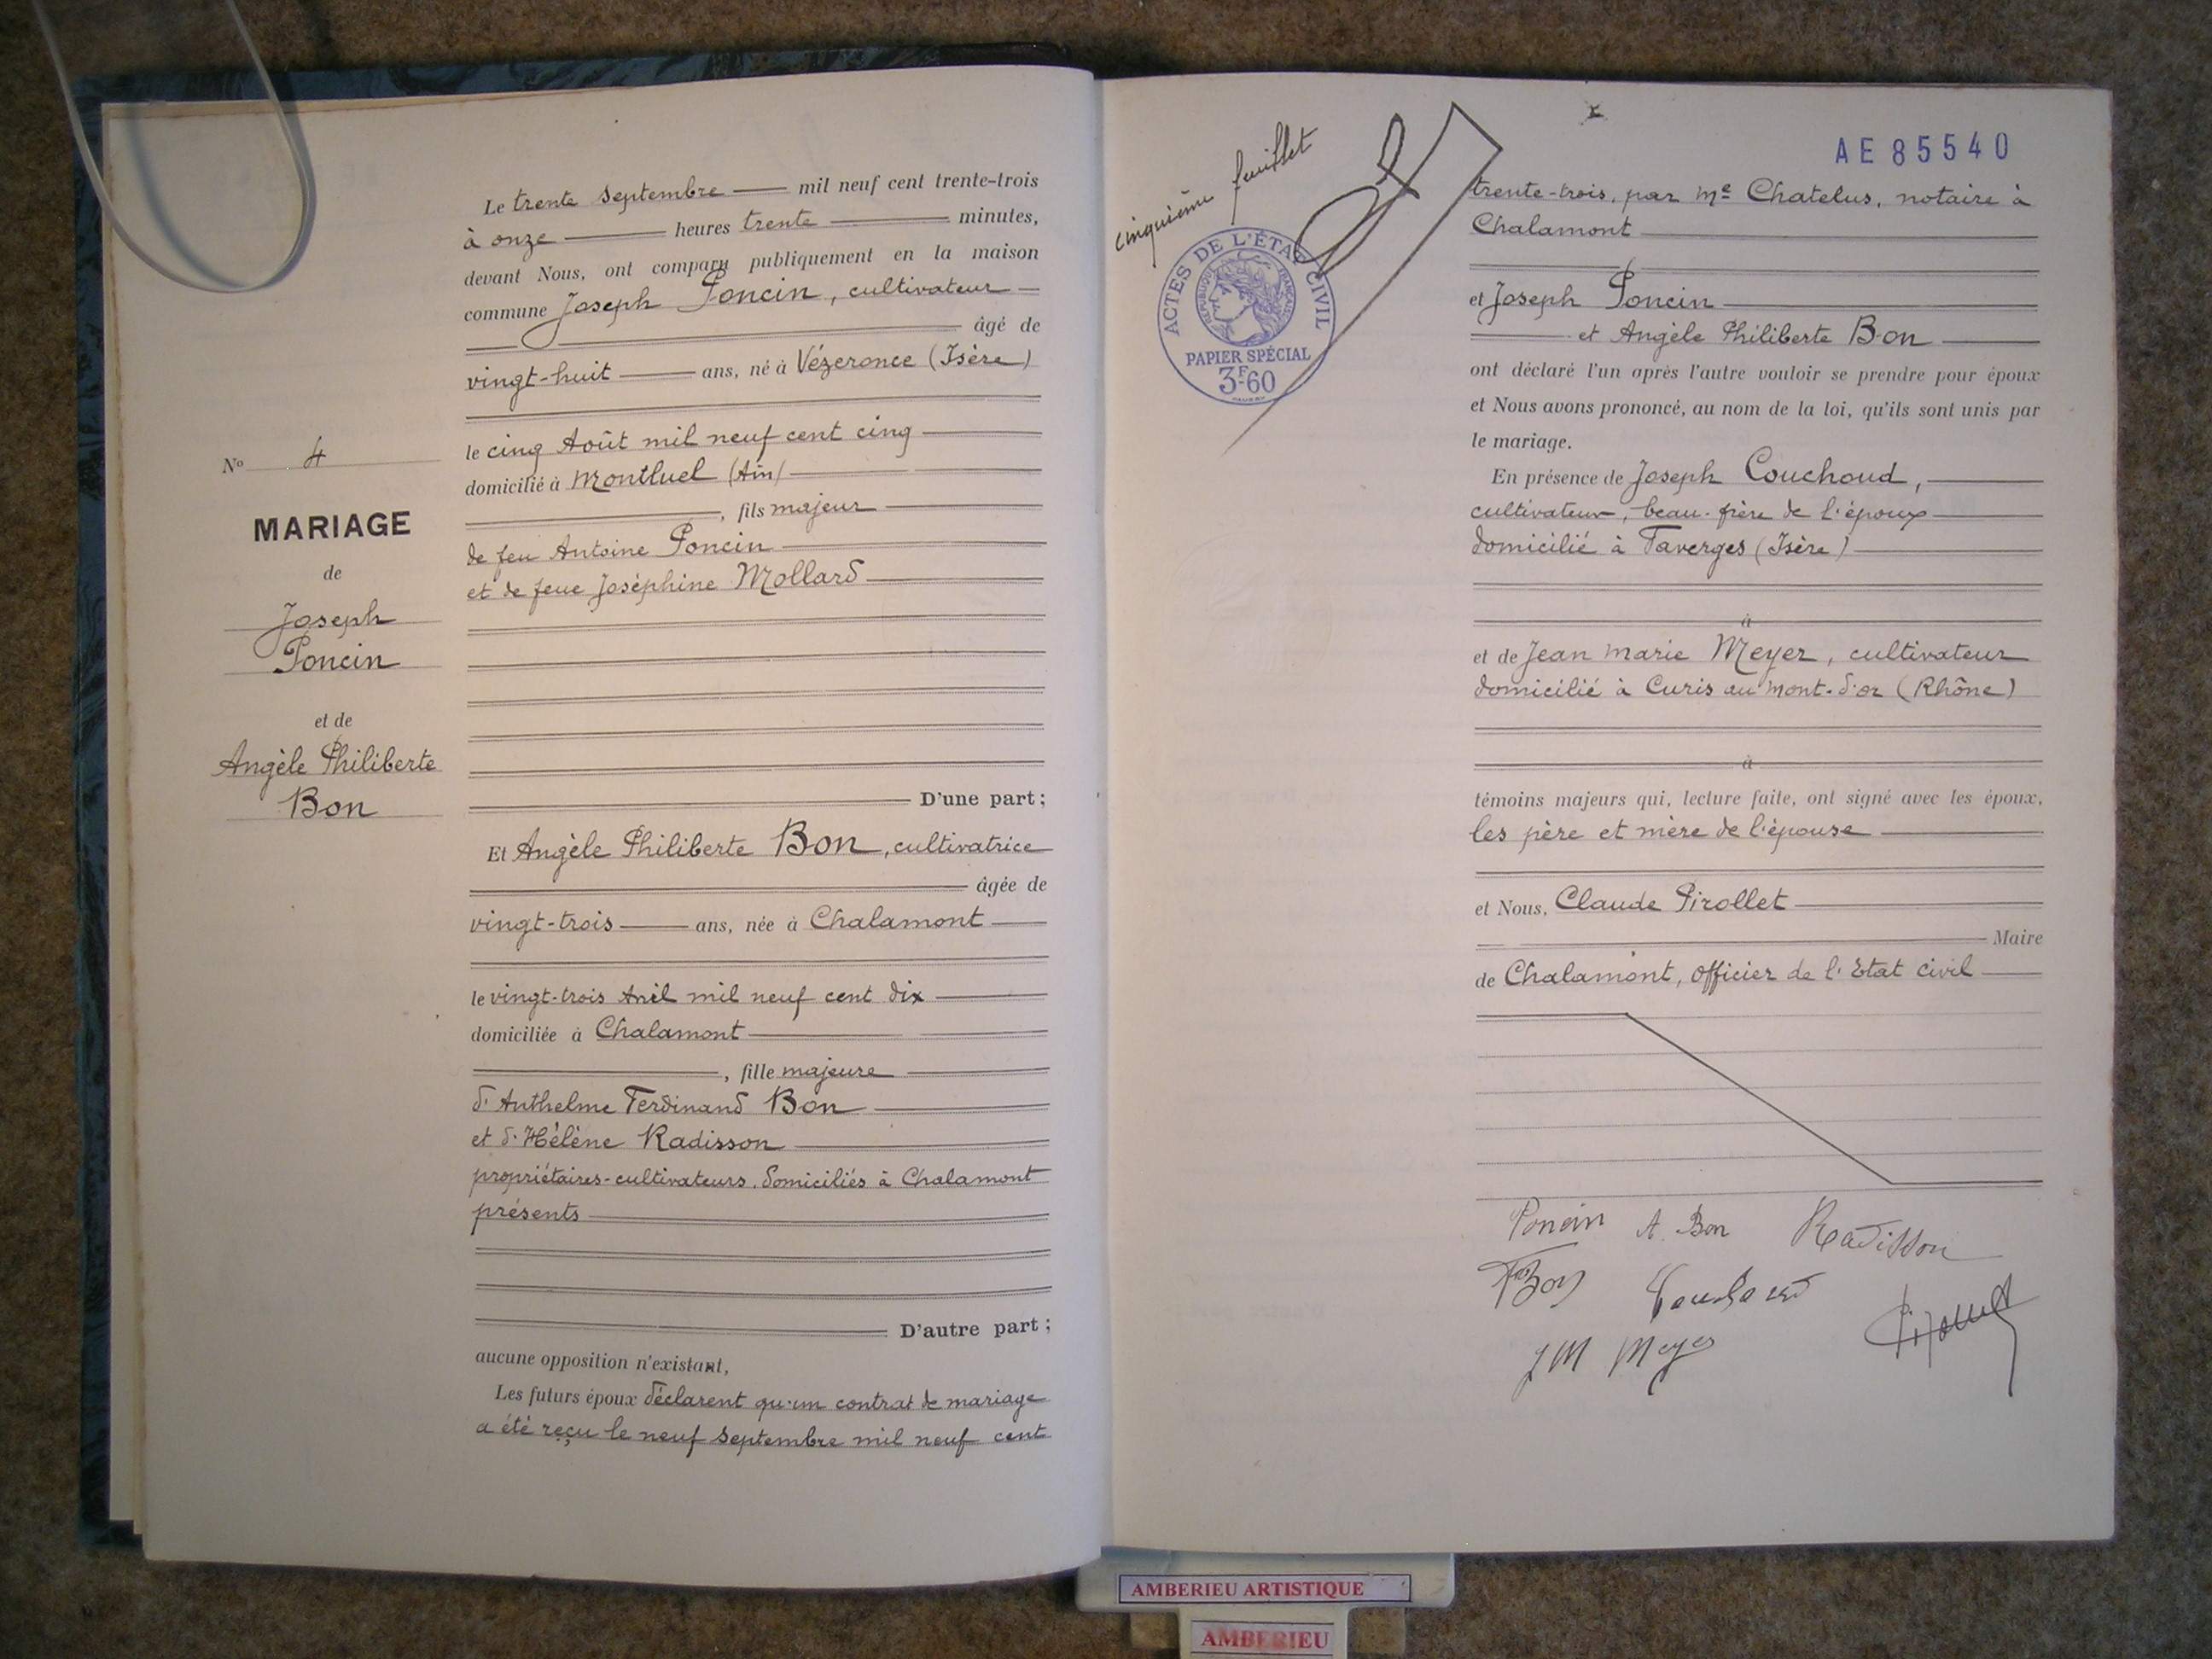 Le trente Septembre mil neuf cent trente-trois
à onze heures trente minutes,
devant Nous, ont comparu publiquement en la maison
commune Joseph Poncin, cultivateur
âgé de
vingt-huit ans, né à Vézeronce (Isère)
le cinq Août mil neuf cent cinq
domicilié à Montluel (Ain)
, fils majeur
de feu Antoine Poncin
et de feue Joséphine Mollard
D'une part;
Et Angèle Philiberte Bon, cultivatrice
âgée de
vingt-trois ans, née à Chalamont
le vingt-trois Avril mil neuf cent dix
domiciliée à Chalamont
, fille majeure
d'Anthelme Ferdinand Bon
et d'Hélène Radisson
propriétaires-cultivateurs, domiciliés à Chalamont
présents
D'autre part;
aucune opposition n'existant,
Les futurs époux déclarent qu'un contrat de mariage
a été reçu le neuf Septembre mil neuf cent
No 4
MARIAGE
de
Joseph
Poncin
et de
Angèle Philiberte
Bon
cinquième feuillet
ACTES DE L'ÉTAT CIVIL
RÉPUBLIQUE FRANÇAISE
PAPIER SPÉCIAL
3F60
AE 85540
trente-trois, par Me Chatelus, notaire à
Chalamont
et Joseph Poncin
et Angèle Philiberte Bon
ont déclaré l'un après l'autre vouloir se prendre pour époux
et Nous avons prononcé, au nom de la loi, qu'ils sont unis par
le mariage.
En présence de Joseph Couchoud,
cultivateur, beau-frère de l'époux
domicilié à Faverges (Isère)
à
et de Jean Marie Meyer, cultivateur
domicilié à Curis au Mont-d'or (Rhône)
à
témoins majeurs qui, lecture faite, ont signé avec les époux,
les père et mère de l'épouse
et Nous, Claude Pirollet
Maire
de Chalamont, Officier de l'Etat civil
Poncin A. Bon Radisson
Bon Couchoud Pirollet
JM Meyer
AMBERIEU ARTISTIQUE
AMBERIEU